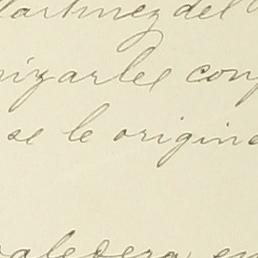 Martinez del
izarle con
se le origin
valedera en